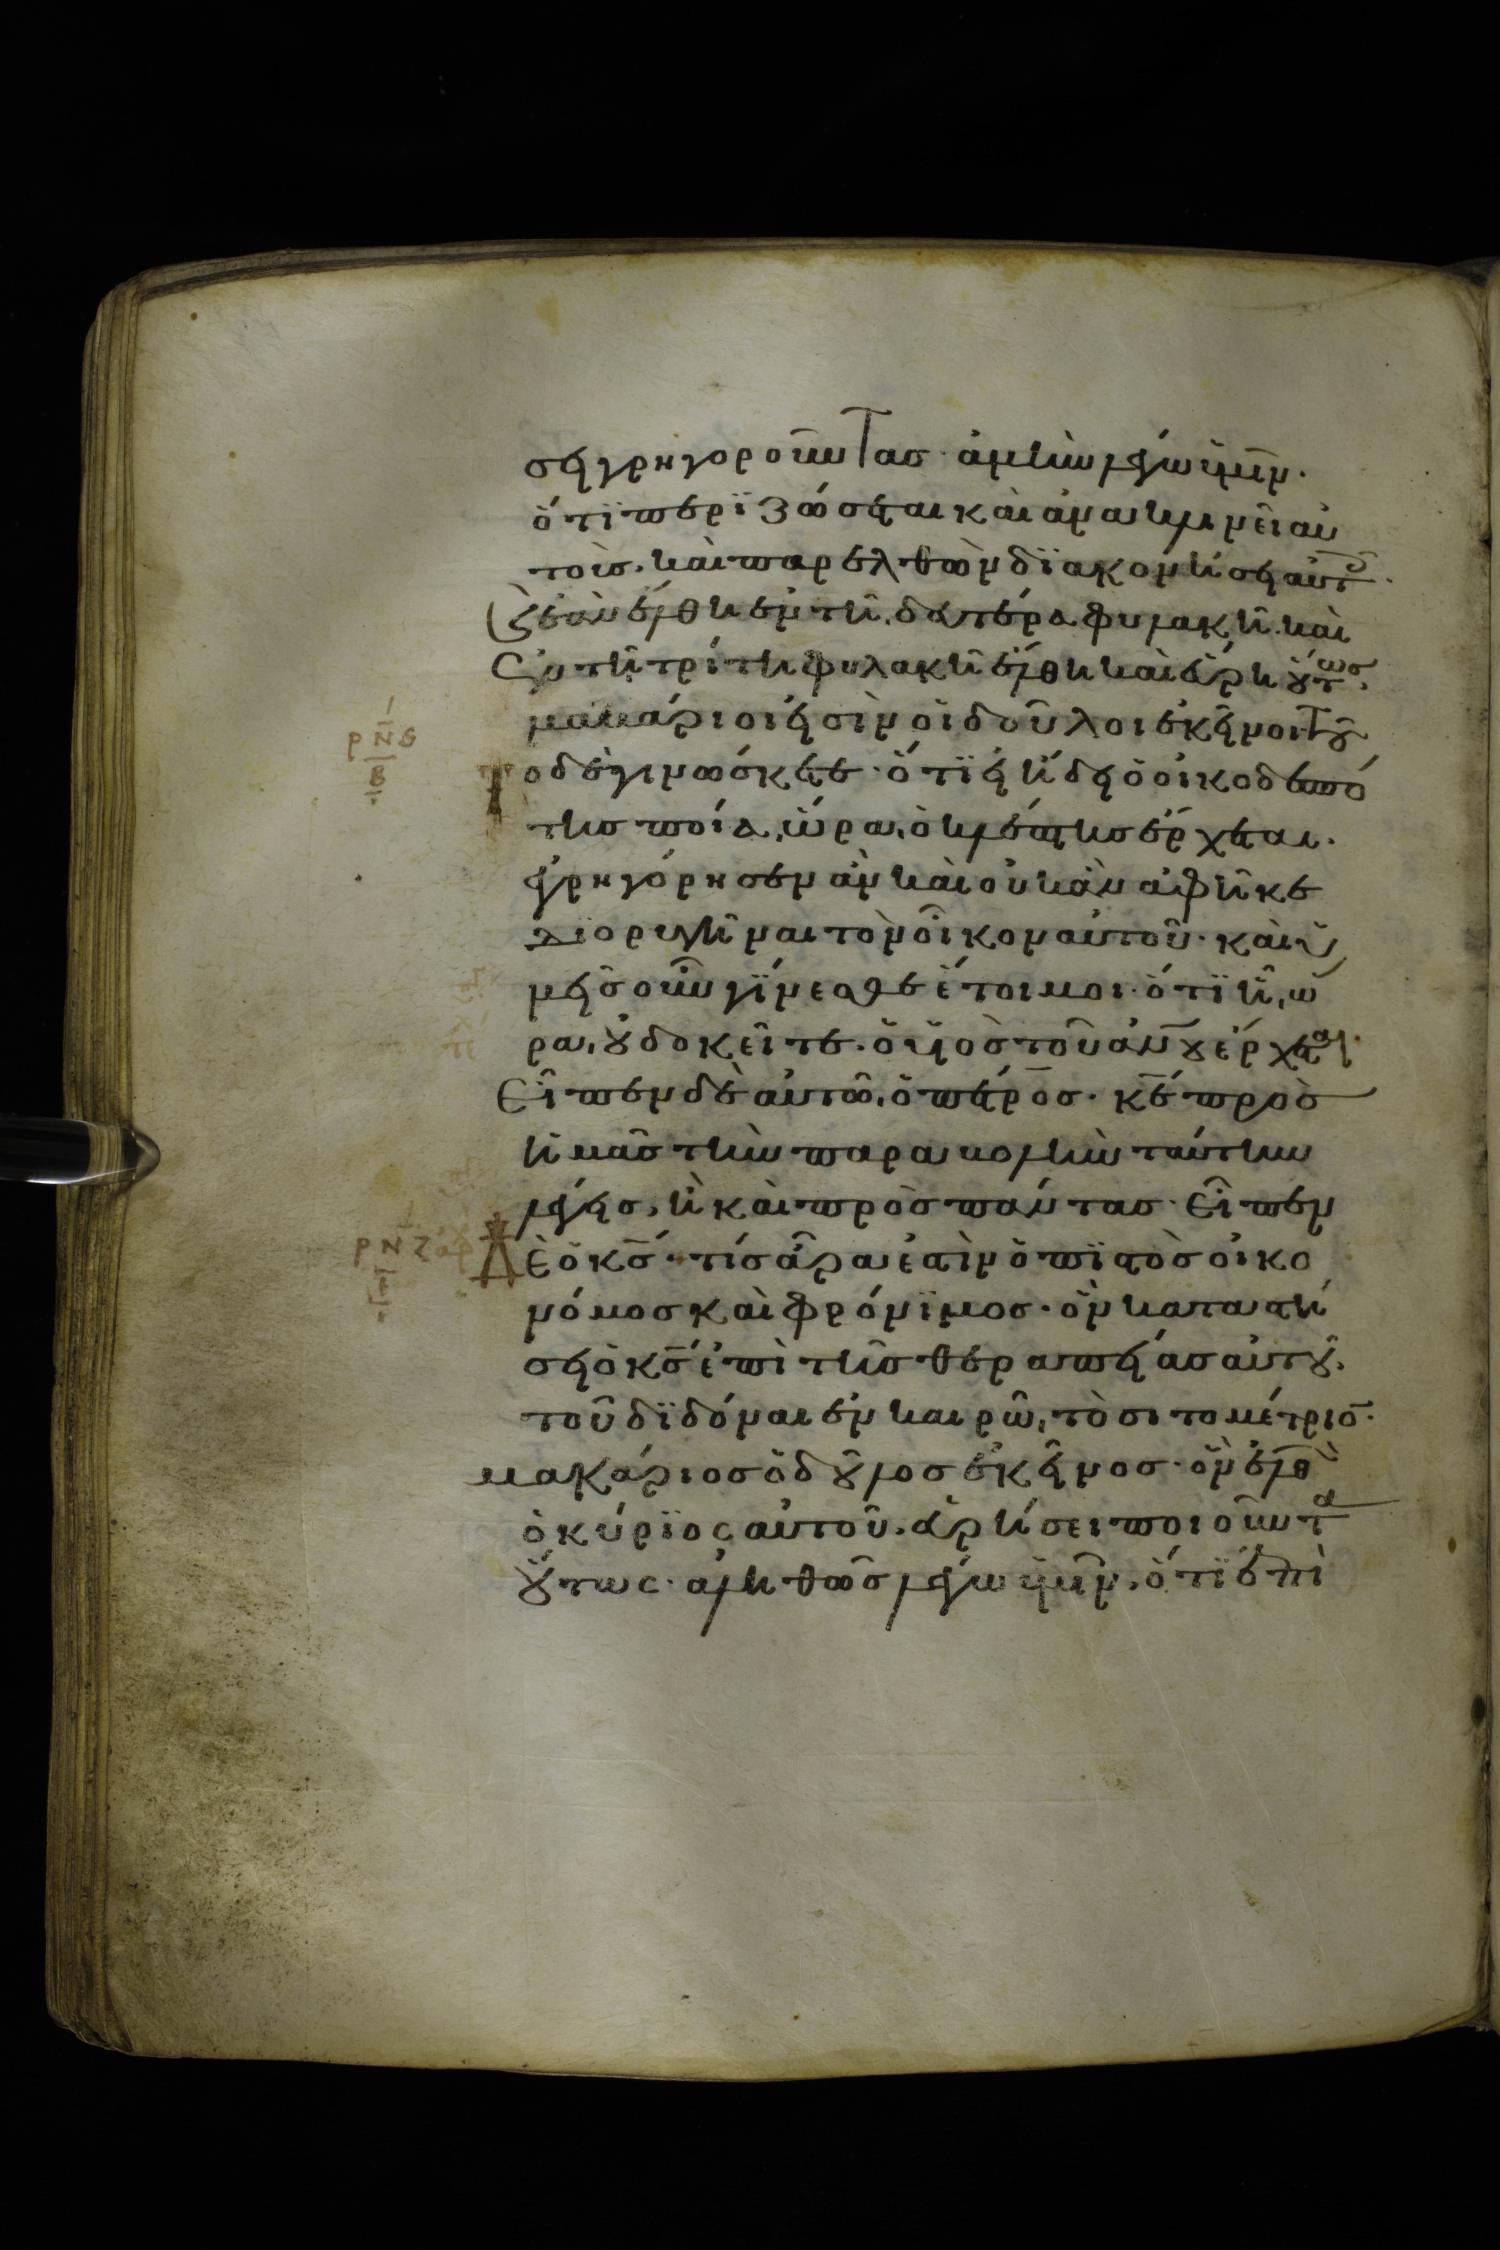 σει γρηγοροῦντας· ἀμὴν λέγω ὑμῖν·
ὅτϊ περϊζώσεται καὶ ἀνακλινεῖ αὐ
τοὺς, καὶ παρελθὼν δϊακονήσει αὐτοῖς·
καὶ ἐὰν ἔλθη ἐν τῆ δευτέρα φυλακῆ. καὶ
ἐν τῆ τρίτη φυλακῆ ἔλθη καὶ εὕρη οὕτως,
μακάριοι εἰσὶν οἱ δοῦλοι ἐκεῖνοι· τοῦ
ρνϛ
β
το δὲ γινώσκετε· ὅτϊ εἰ ἤδει ὁ οἰκοδεσπό
της ποία ὥρα, ὁ κλέπτης ἔρχεται.
ἐγρηγόρησεν ἂν καὶ οὐκ ἂν ἀφῆκε
διορυγῆναι τὸν οἶκον αὐτοῦ· καὶ ὑ
μεῖς οὖν γίνεσθε ἕτοιμοι· ὅτϊ ἧ ὥ
ρα, οὐ δοκεῖτε. ὁ υἱὸς τοῦ ἀνου ἔρχεται·
Εἶπεν δὲ αὐτῶ, ὁ πέτρος· κε πρὸς
ἡμᾶς τὴν παραβολὴν ταύτην
λέγεις, ἢ καὶ πρὸς πάντας· Εἶπεν
ρνζ ἀρ
Δὲ ὁ κς· τίς ἄρα ἐστὶν ὁ πϊστὸς οἰκο
νόμος καὶ φρόνϊμος· ὃν καταστή
σει ὁ κς ἐπὶ τῆς θεραπείας αὐτοῦ,
τοῦ δϊδόναι ἐν καιρῶ, τὸ σιτομέτριον·
μακάριος ὁ δοῦλος ἐκεῖνος· ὃν ἐλθὼν
ὁ κύρϊος αὐτοῦ, εὑρήσει ποιοῦντα
οὕτως· ἀληθῶς λέγω ὑμῖν, ὅτϊ ἐπὶ